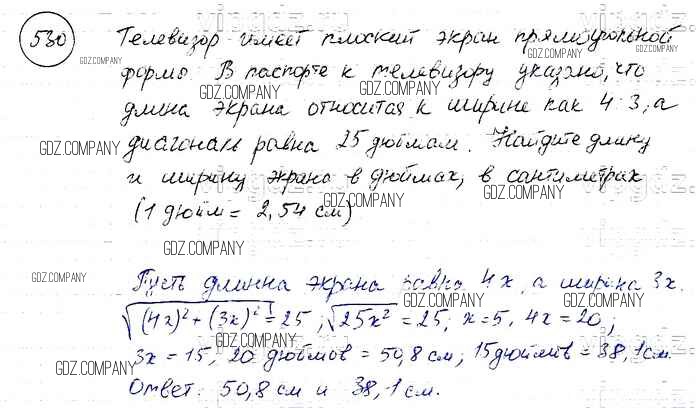 530 Телевизор имеет плоский экран прямоугольной
формы. В паспорте к телевизору указано, что
длина экрана относится к ширине как 4:3, а
диагональ равна 25 дюймам. Найдите длину
и ширину экрана в дюймах, в сантиметрах
(1 дюйм = 2,54 см)
Пусть длинна экрана равна 4x, а ширина 3x.
√(4x)² + (3x)² = 25; √25x² = 25; x=5, 4x = 20;
3x = 15, 20 дюймов = 50,8 см; 15 дюймов = 38,1 см.
Ответ: 50,8 см и 38,1 см.
GDZ.COMPANY
GDZ.COMPANY
GDZ.COMPANY
GDZ.COMPANY
GDZ.COMPANY
GDZ.COMPANY
GDZ.COMPANY
GDZ.COMPANY
GDZ.COMPANY
GDZ.COMPANY
GDZ.COMPANY
GDZ.COMPANY
GDZ.COMPANY
GDZ.COMPANY